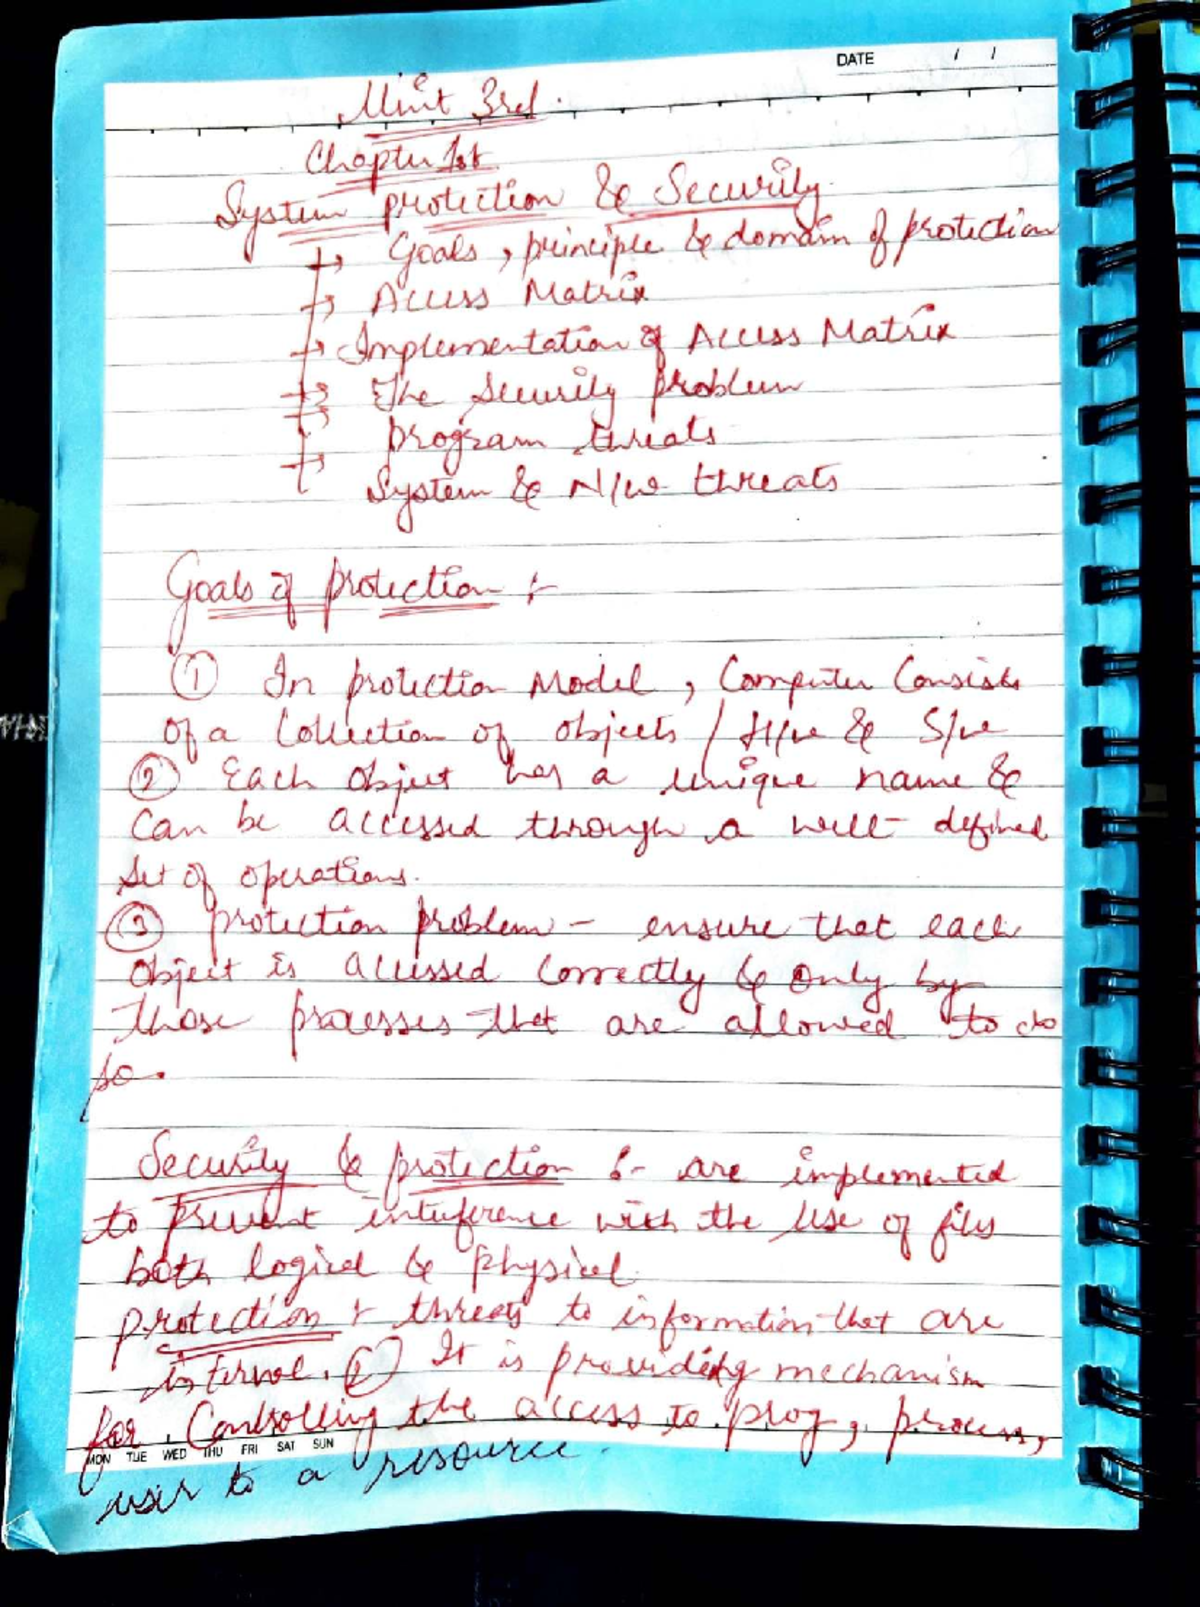 DATE / /
Unit 3rd.
Chapter 1st
System protection & Security
→ Goals, principle & domain of protection
→ Access Matrix
→ Implementation of Access Matrix
→ The Security problem
→ program threats
→ System & N/w threats
Goals of protection :-
① In protection Model, Computer Consists
of a Collection of objects / H/w & S/w
② Each object has a unique name &
can be accessed through a well-defined
set of operations.
③ protection problem - ensure that each
object is accessed correctly & only by
those processes that are allowed to do
so.
Security & protection :- are implemented
to prevent interference with the use of files
both logical & physical.
protection :- threats to information that are
internal. ② It is providing mechanism
for Controlling the access to prog, process,
MON TUE WED THU FRI SAT SUN
user to a resource.